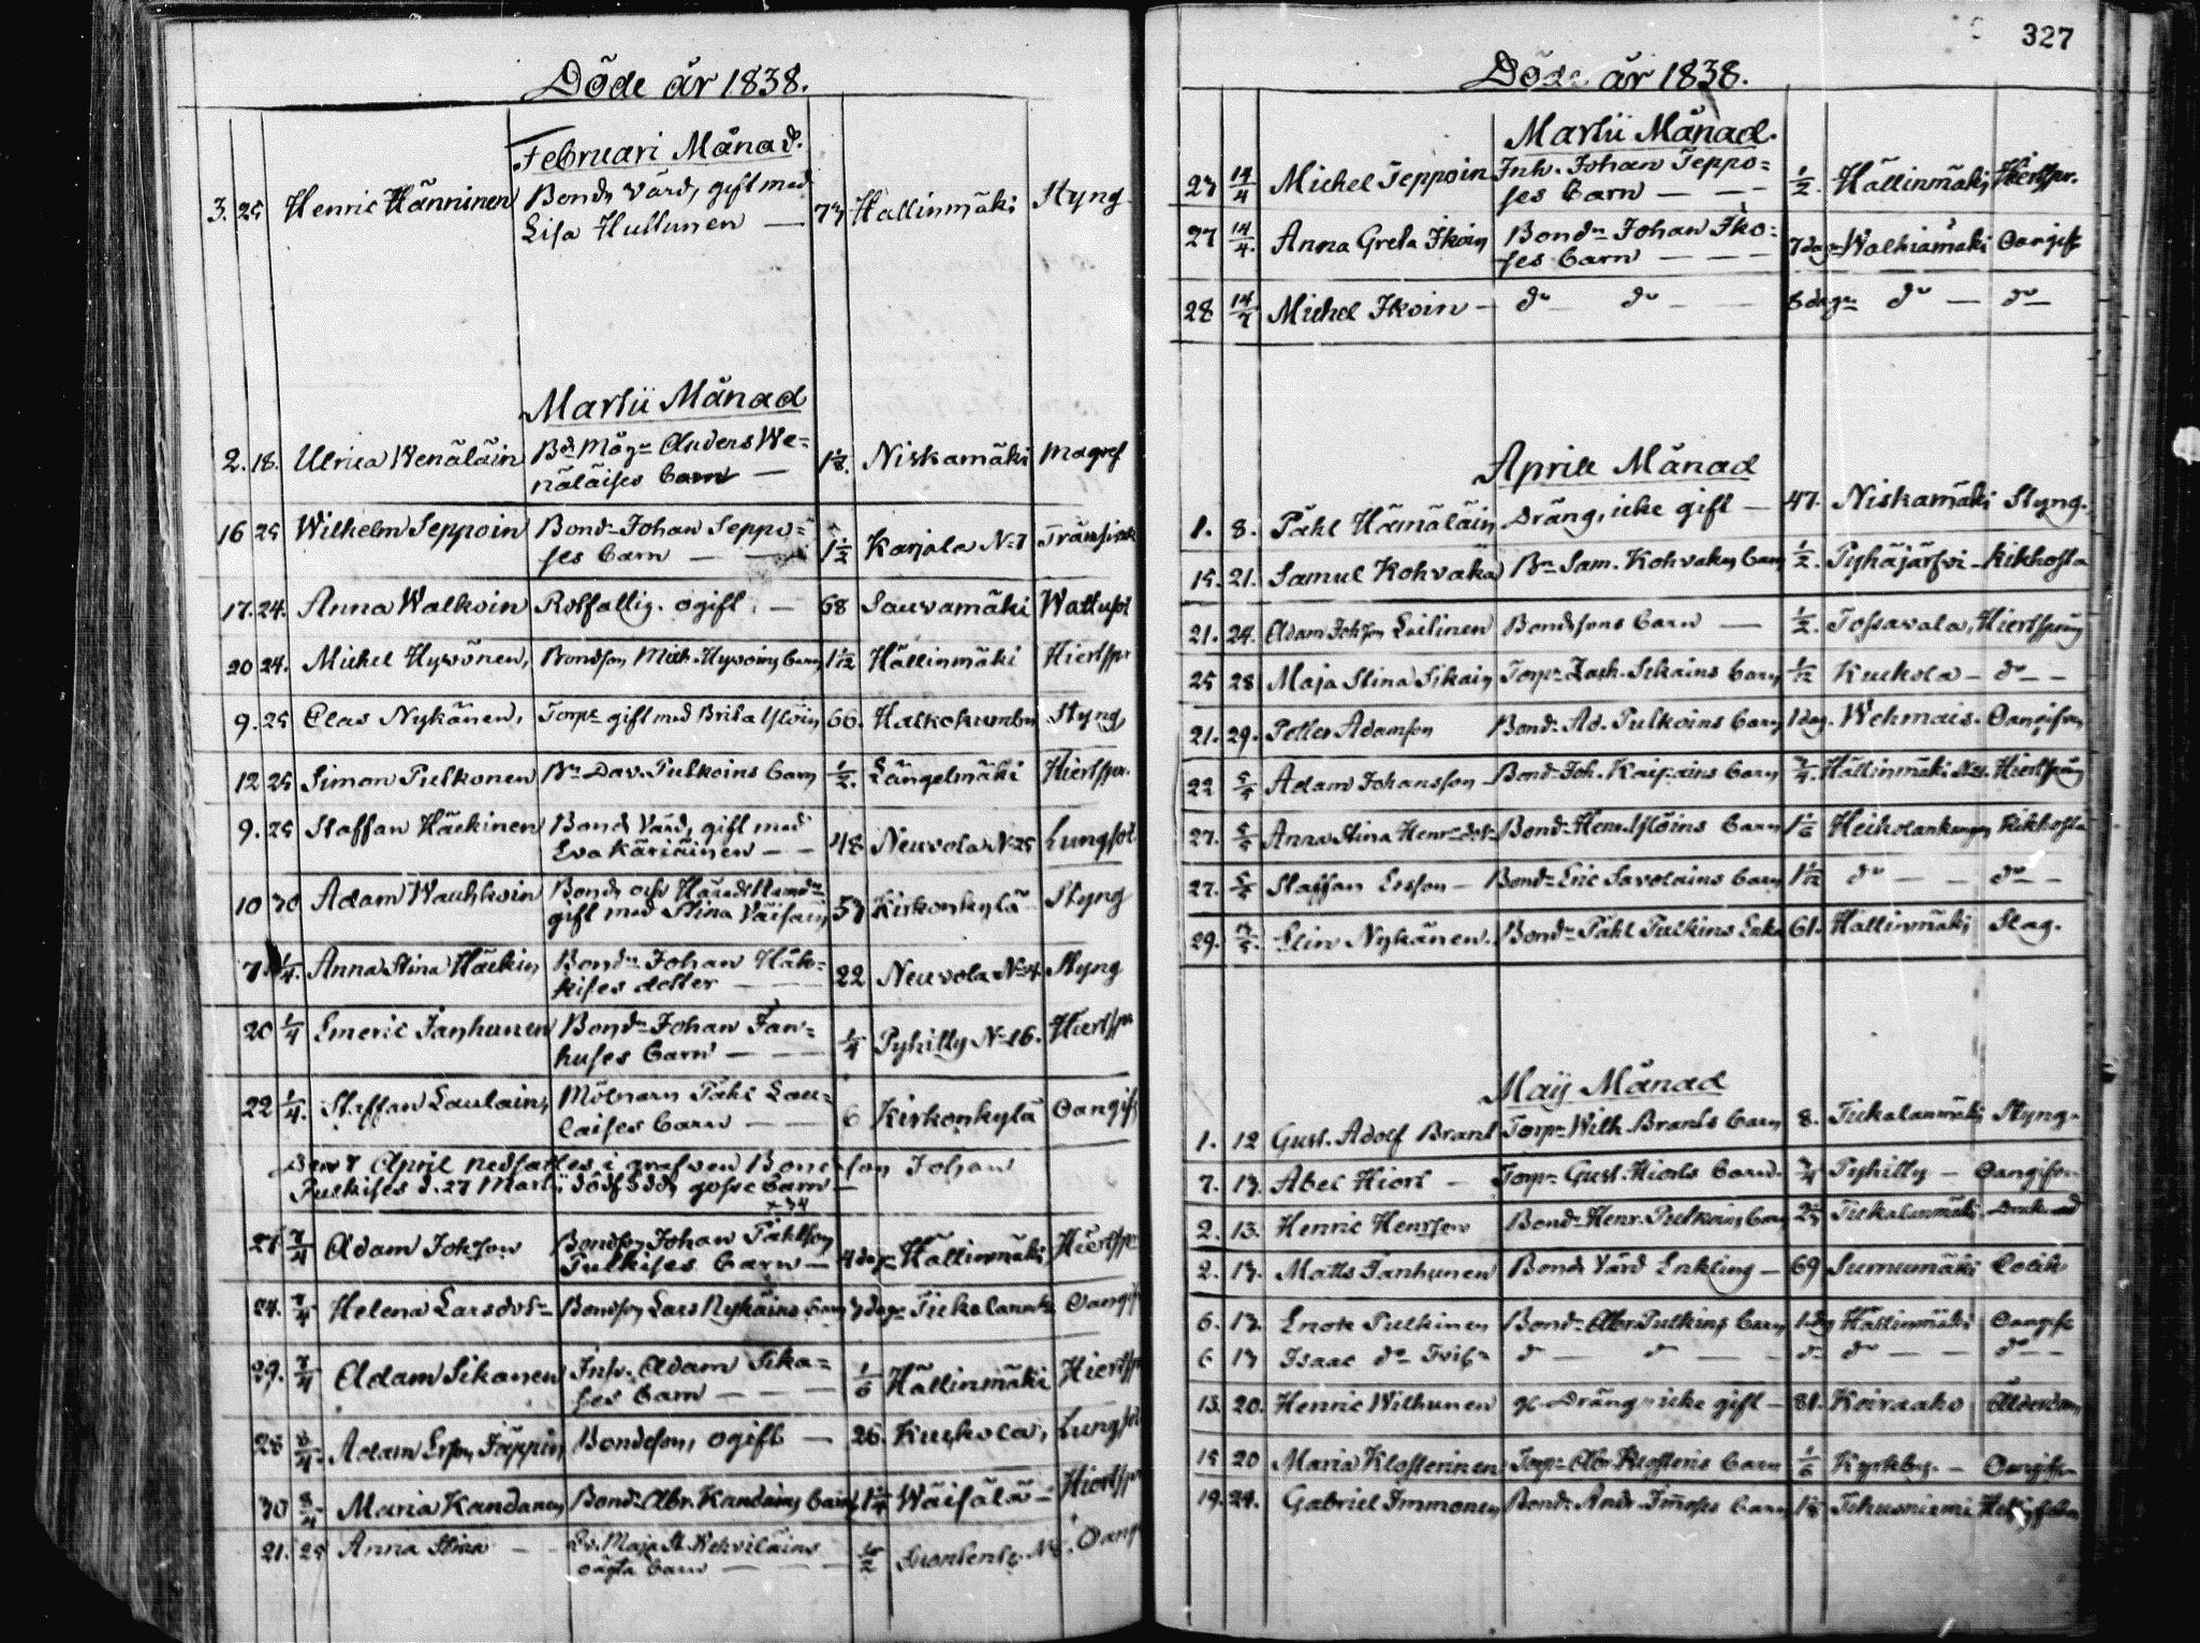 Döde år 1838.
Februari Månad.
3. 25 Henric Hänninen Bond. Värd, gift med
Lisa Huttunen — 73 Hällinmäki Styng
Martii Månad
2. 18. Ulrica Wenäläin Bd. Måg. Anders We=
näläises barn — 1 1/8. Niskamäki Magref
16 25 Wilhelm Seppoin Bond. Johan Seppo=
ses barn — 1 1/2 Karjala N:7
17. 24. Anna Walkoin Rotfattig. ogift. — 68 Sauvamäki Wattusot
20 24. Michel Hyvönen, Bondson Mich. Hyvoins barn 1 1/12 Hällinmäki Hiertspr
9. 25 Clas Nykänen, Torp. gift med Brita Ylöin 66. Halkokumbu Styng
12 25 Simon Pulkonen Bn. Dav. Pulkoins barn 1/2. Längelmäki Hiertspr.
9. 25 Staffan Häckinen Bond Värd, gift med
Eva Käriäinen — — 48 Neuvola N:25 Lungsot
10 30 Adam Wauhkoin Bond. och Härads
gift med Stina Väisäin 53 Kirkonkylä Styng
7 1/4. Anna Stina Häckin Bond. Johan Häk=
kises dotter — — 22 Neuvola N:4 Styng
20 1/4 Emeric Janhunen Bond. Johan Jan=
huses barn — — 1/4 Pyhilty N:16. Hiertspr
22 1/4. Staffan Laulain, Mölnarn Påhl Lau=
laises barn — — 6 Kirkonkylä Oangifv
Den 7 April nedsattes i grafven Bondeson Johan
Pulkises d. 27 Martii dödfödda gosse barn —
+34
27 7/4 Adam Johsson Bondson Johan Påhlson
Pulkises barn — 4 dag. Hällinmäki Hiertspr
24. 7/4 Helena Larsdotr Bondson Lars Nykäins barn 3 dag. Oangif
29. 7/4 Adam Sikanen Inh. Adam Sika=
ses barn — — — 1/6 Hällinmäki Hiertspr
28 8/4 Adam Ersson Jäppin, Bondeson, ogift — 26. Kuckola, Lungsot
30 8/4 Maria Kandanen Bond. Abr. Kandains barn 1 1/4 Wäisälä — Hiertspr
21. 25 Anna Stina — — Maja St. Nehviläins
oägta barn — — — Oangif
327
Döde år 1838.
Martii Månad.
23 14/4 Michel Teppoin Inh. Johan Teppo=
ses barn — — 1/2. Hällinmäki Hiertspr.
27 14/4. Anna Greta Ikoin Bondn Johan Iko=
ses barn — — — 7 dagr Walkiamäki Oangift
28 14/4 Michel Ikoin — do do — — 8 dagr do — do —
Aprill Månad
1. 8. Påhl Hämäläin, Dräng, icke gift — 47. Niskamäki Styng.
15. 21. Samul Kohvaka Bn. Sam. Kohvakas barn 1/2. Pyhäjärfvi — Kikhosta
21. 24. Adam Johson Laitinen Bondesons barn — 1/2. Tossavala, Hiertsprång
25 28 Maja Stina Sikain Torp. Zach. Sikains barn 1/12 Kuckola — do — —
21. 29. Petter Adamson Bond. Ad. Pulkoins barn 1 dag. Wehmais. Oangifven
22 5/5 Adam Johansson — Bond. Joh. Kaipains barn 3/4. Hällinmäki Hiertsprång
27. 5/5 Anna Stina Henr. dotr Bond. Henr. Ylöins barn 1 1/6 Heikolankangas Kikhosta
27. 5/5 Staffan Ersson — Bond. Eric Savolains barn 1 1/12 do — — do — —
29. Elin Nykänen. Bondn Påhl Pulkins Enka 61. Hällinmäki Slag.
Maij Månad
1. 12 Gust. Adolf Brant Torp. Wilh. Brants barn 8. Tickalanmäki Styng.
7. 13. Abel Hiort — Torp. Gust. Hiorts barn. 3/4 Pyhilty — Oangifven
2. 13. Henric Henrsson Bond. Henr. Pulkoins barn Tickalanmäki
2. 13. Matts Janhunen Bond. Värd Enkling — 69 Sumumäki Colik
6. 13. Enok Pulkinen Bond. Abr. Pulkins barn 1 dag Hällinmäki Oangift
6 13 Isaac do Tvill. do — do — — do do — — do — —
13. 20. Henric Wilhunen Dräng icke gift — 81. Koiraaho Ålderdom
15 20 Maria Klosterinen Torp. Abr. Klosteris barn 1/6 Kyrkby. — Oangifven
19. 24. Gabriel Immonen Bond. Andr. Immoses barn 1 1/8